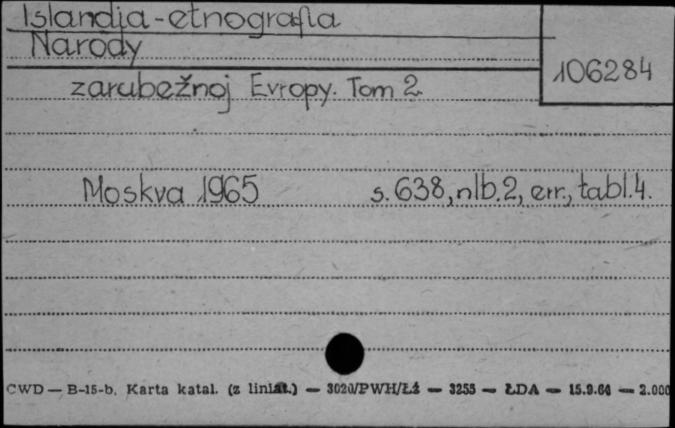 Islandia-etnografia
Narody
106284
zarubežnoj Evropy. Tom 2.
Moskva 1965 s. 638, nlb. 2, err., tabl. 4.
CWD — B-15-b. Karta katal. (z liniat.) — 3020/PWH/Łź — 3255 — ŁDA — 15.9.64 — 2.000